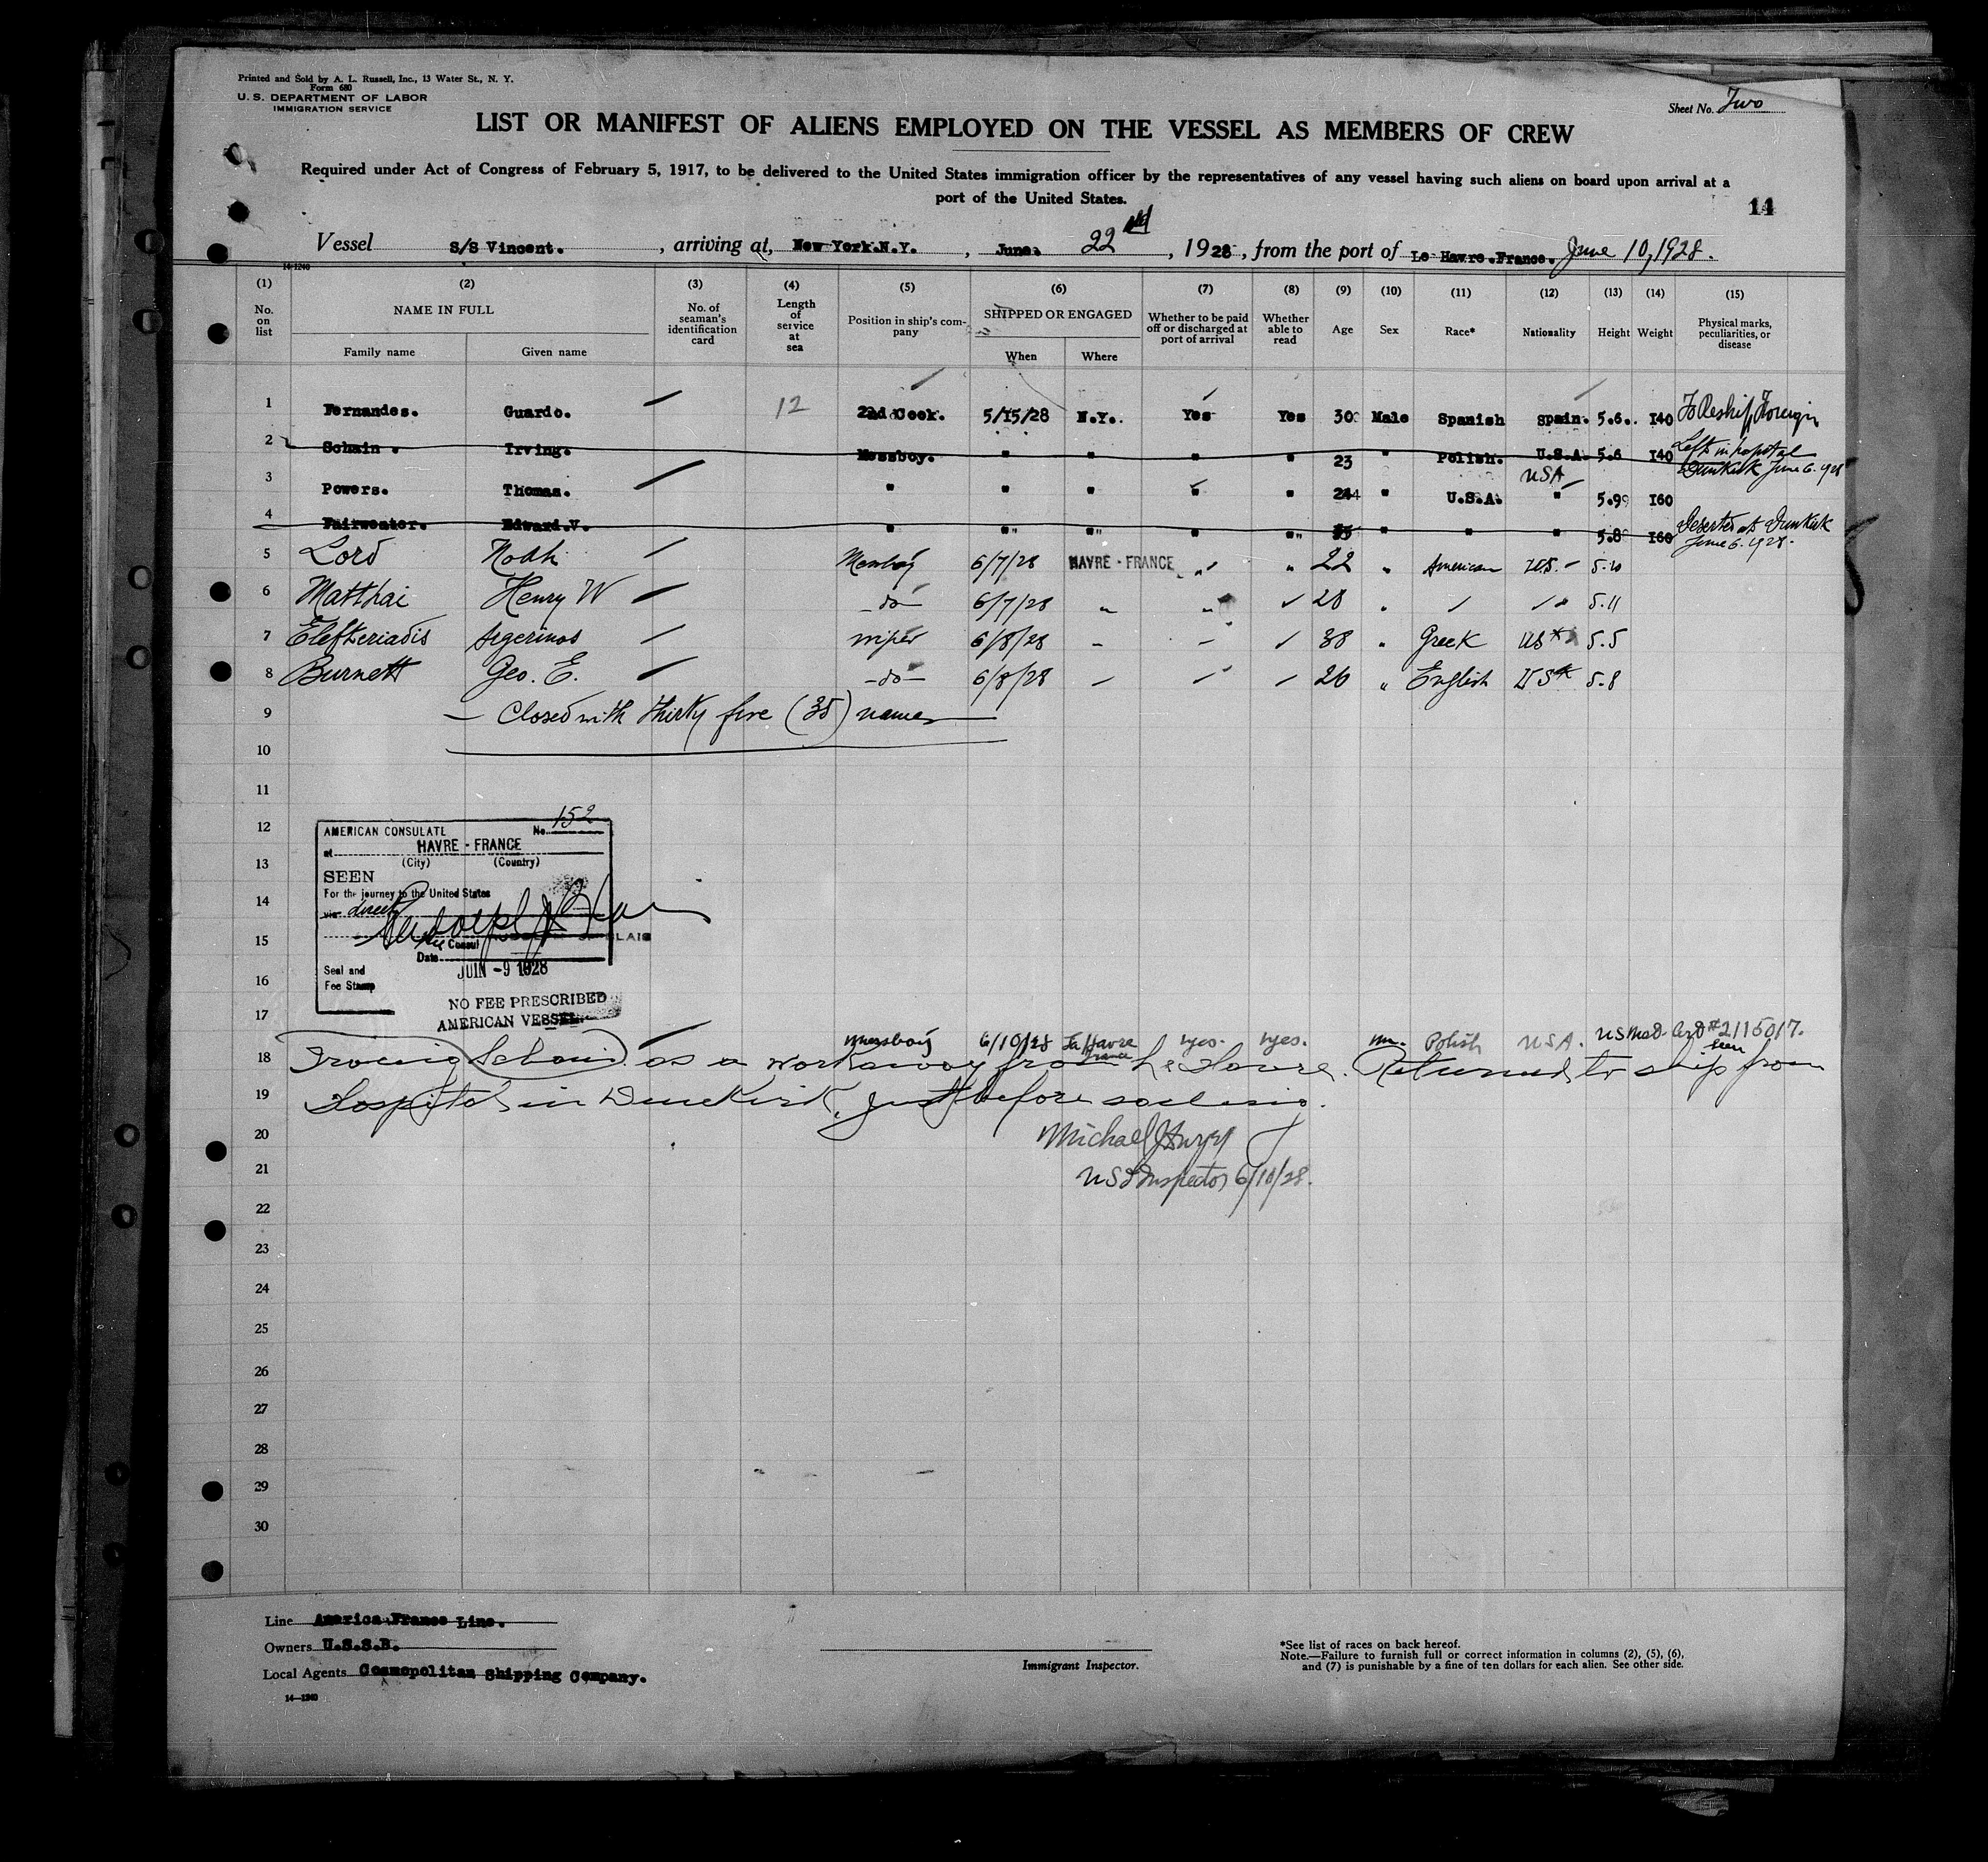 Printed and Sold by A. L. Russell, Inc., 13 Water St., N. Y.
Form 680
U. S. DEPARTMENT OF LABOR
IMMIGRATION SERVICE
Sheet No. Two
LIST OR MANIFEST OF ALIENS EMPLOYED ON THE VESSEL AS MEMBERS OF CREW
Required under Act of Congress of February 5, 1917, to be delivered to the United States immigration officer by the representatives of any vessel having such aliens on board upon arrival at a
port of the United States.
14
Vessel S/S Vincent. , arriving at, New York.N.Y. , June. 22nd , 1928 , from the port of Le Havre.France. June 10, 1928.
14-1240
(1) (2) (3) (4) (5) (6) (7) (8) (9) (10) (11) (12) (13) (14) (15)
No. on list NAME IN FULL Family name Given name No. of seaman's identification card Length of service at sea Position in ship's company SHIPPED OR ENGAGED When Where Whether to be paid off or discharged at port of arrival Whether able to read Age Sex Race* Nationality Height Weight Physical marks, peculiarities, or disease
1 Fernandes. Guardo. 12 2nd Cook. 5/15/28 N.Y. Yes Yes 30 Male Spanish Spain. 5.6. 140 To Reship Foreign
2 Schain. Irving. Messboy. " " " " 23 " Polish. U.S.A. 5.6 140 Left in hospital Dunkirk June 6-1928
3 Powers. Thomas. " " " " " 24 " U.S.A. USA " 5.9 160
4 Fairweater. Edward.V. " " " " " " " " 5.8 160 Deserted at Dunkirk June 6-1928-
5 Lord Noah Messboy 6/7/28 HAVRE - FRANCE " " 22 " American U.S. - 5.10
6 Matthai Henry W -do- 6/7/28 " " 28 " 5.11
7 Elefteriadis Argerinos wiper 6/8/28 - - 38 " Greek US* 5.5
8 Burnett Geo. E. -do- 6/8/28 - - 26 " English US* 5.8
9 - Closed with thirty five (35) names
10
11
12
13
14
15
16
17
AMERICAN CONSULATE No. 152
at HAVRE - FRANCE
(City) (Country)
SEEN
For the journey to the United States
via direct
Consul
Date JUIN -9 1928
Seal and
Fee Stamp
NO FEE PRESCRIBED
AMERICAN VESSEL.
messboy 6/10/28 La Havre France yes. yes. m. Polish USA. US Med. Crd #2115017. seen
18 Irving Schain as a workaway from Le Havre. Returned to ship from
19 Hospital in Dunkirk, just before sailing.
20 Michael
21 US Inspector 6/10/28.
22
23
24
25
26
27
28
29
30
Line America France Line.
Owners U.S.S.B.
Local Agents Cosmopolitan Shipping Company.
14-1240
Immigrant Inspector.
*See list of races on back hereof.
Note.—Failure to furnish full or correct information in columns (2), (5), (6),
and (7) is punishable by a fine of ten dollars for each alien. See other side.